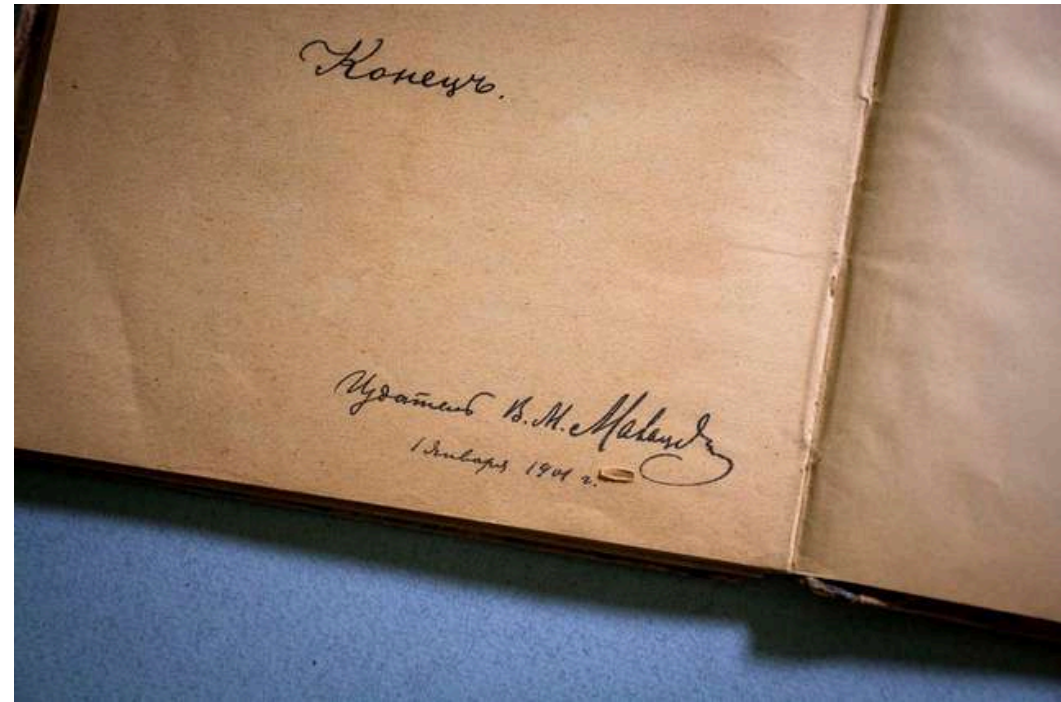 Конецъ.
Издатель В. М.
1 Января 1901 г.